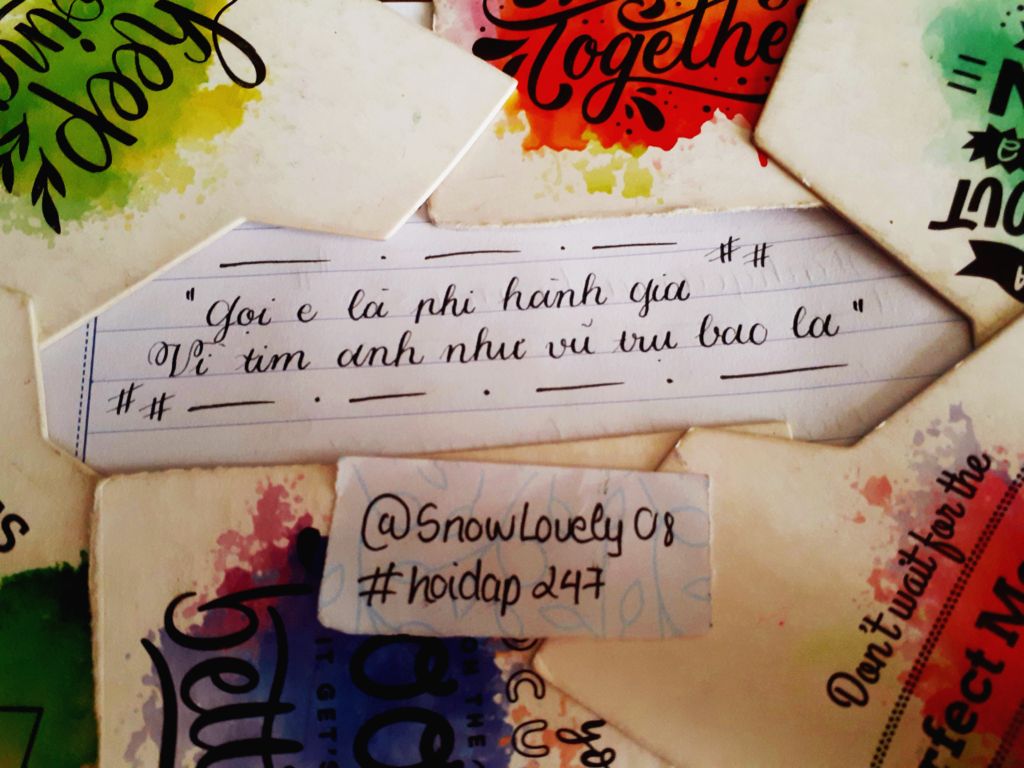 keep
Together
OUT
"Gọi e là phi hành gia
Vì tim anh như vũ trụ bao la"
@SnowLovely08
#hoidap247
Don't wait for the
IT GET'S
ON THE